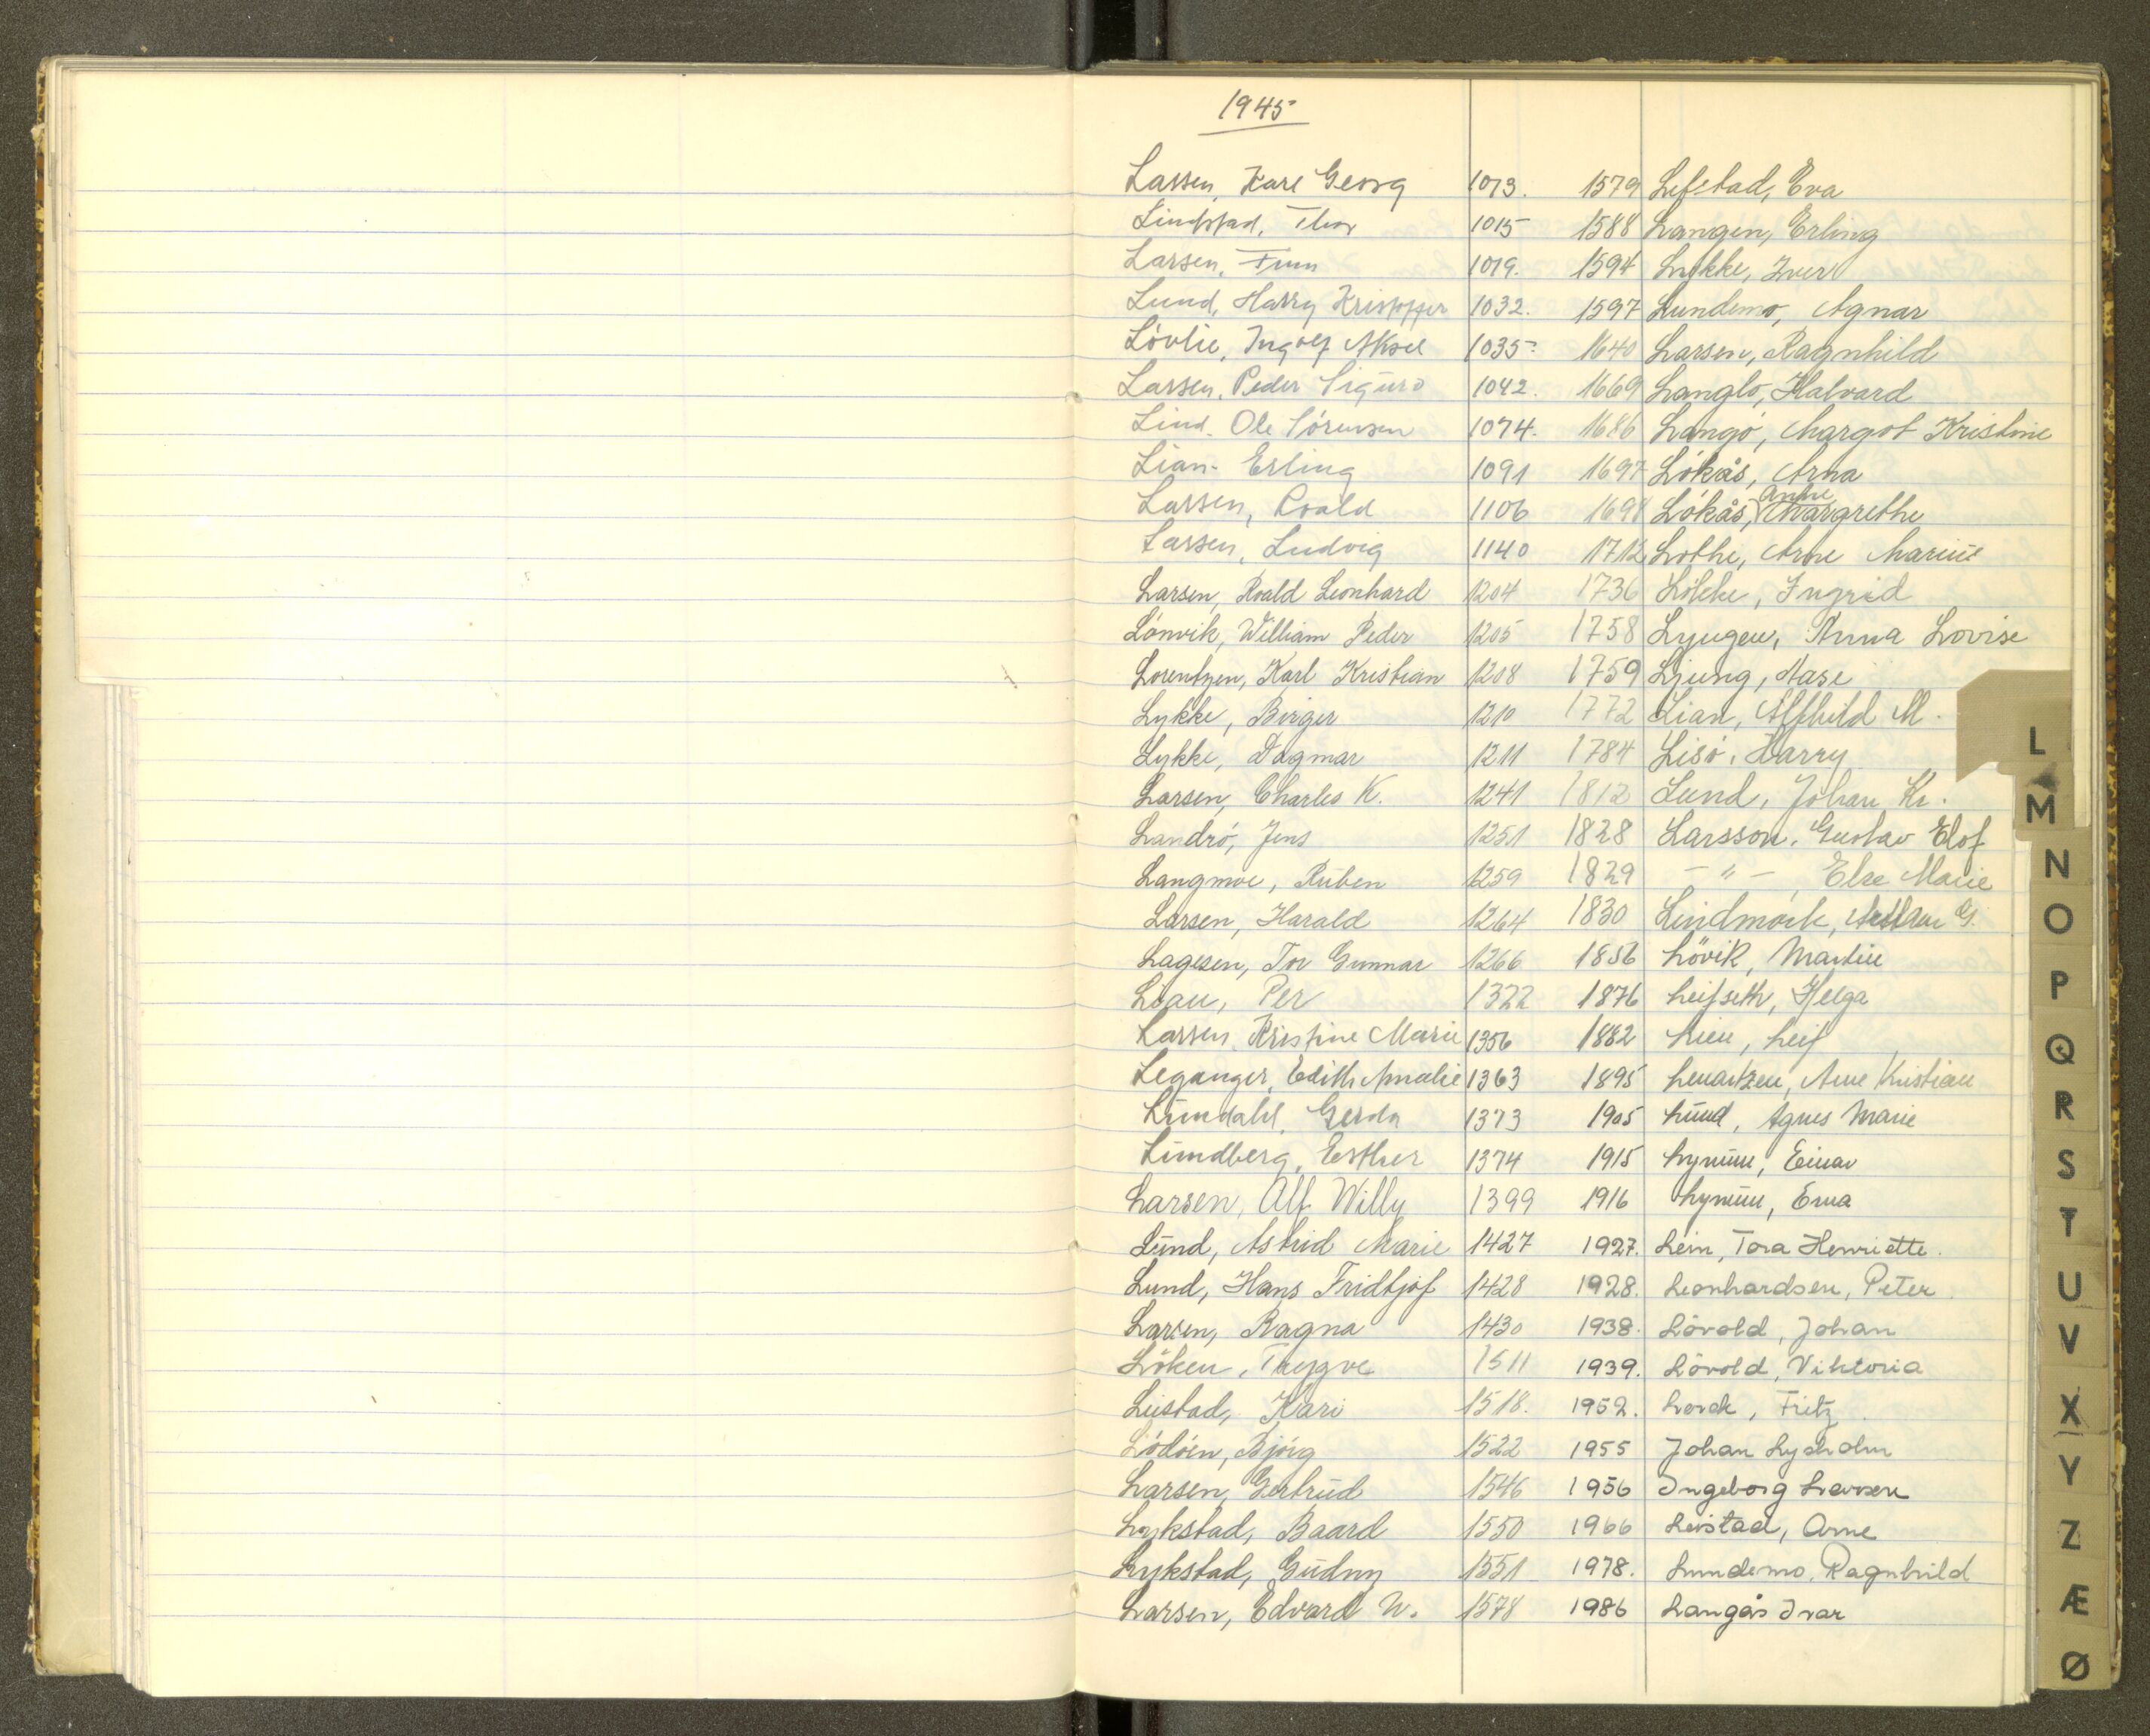 1945
Larsen, Karl Georg 1013. 1579 Lefstad, Eva
Lindstad, Thor 1015 1588 Langen, Erling
Larsen, Finn 1019. 1594 Lykke, Iver
Lund, Harry Kristoffer 1032. 1597 Lundemo, Agnar
Lövlie, Ingolf Aksel 1035. 1640 Larsen, Ragnhild
Larsen, Peder Sigurd 1042. 1669 Langlo, Halvard
Lind. Ole Sörensen 1074. 1686 Langö, Margot Kristine
Lian. Erling 1091 1697 Lökås, Arna
Larsen, Roald 1106 1698 Lökås, Anne Margrethe
Larsen, Ludvig 1140 1712 Lothe, Arne Marius
Larsen, Roald Leonhard 1204 1736 Lökke, Ingrid
Lönvik, William Peder 1205 1758 Lyngen, Anna Lovise
Lorentzen, Karl Kristian 1208 1759 Ljung, Aase
Lykke, Birger 1210 1772 Lian, Alfhild M.
Lykke, Dagmar 1211 1784 Lisö, Harry
Larsen, Charles K. 1241 1812 Lund, Johan Kr.
Landrö, Jens 1251 1828 Larsson, Gustav Elof
Langmoe, Ruben 1259 1829 - " - , Else Marie
Larsen, Harald 1264 1830 Lindmörk, G.
Lagesen, Tor Gunnar 1266 1856 Lövik, Martin
Loan, Per 1322 1876 Leifseth, Helga
Larsen, Kristine Marie 1356 1882 Lien, Leif
Leganger, Edith Amalie 1363 1895 Lenartzen, Arne Kristian
Lundahl, Gerda 1373 1905 Lund, Agnes Marie
Lundberg, Esther 1374 1915 Lynum, Einar
Larsen, Alf Willy 1399 1916 Lynum, Erna
Lund, Astrid Marie 1427 1927. Lein, Tora Henriette.
Lund, Hans Fridtjof 1428 1928. Leonhardsen, Peter.
Larsen, Ragna 1430 1938. Lövold, Johan
Löken, Trygve 1511 1939. Lövold, Viktoria
Leistad, Kari 1518. 1952. Lorck, Fritz.
Lödöen, Björg 1522 1955 Johan Lysholm
Larsen, Gertrud 1546 1956 Ingeborg Larsen
Lykstad, Baard 1550 1966 Leistad, Arne
Lykstad, Gudny 1551 1978. Lundemo, Ragnhild
Larsen, Edvard W. 1578 1986 Langås Ivar
L
M
N
O
P
Q
R
S
T
U
V
X
Y
Z
Æ
Ø